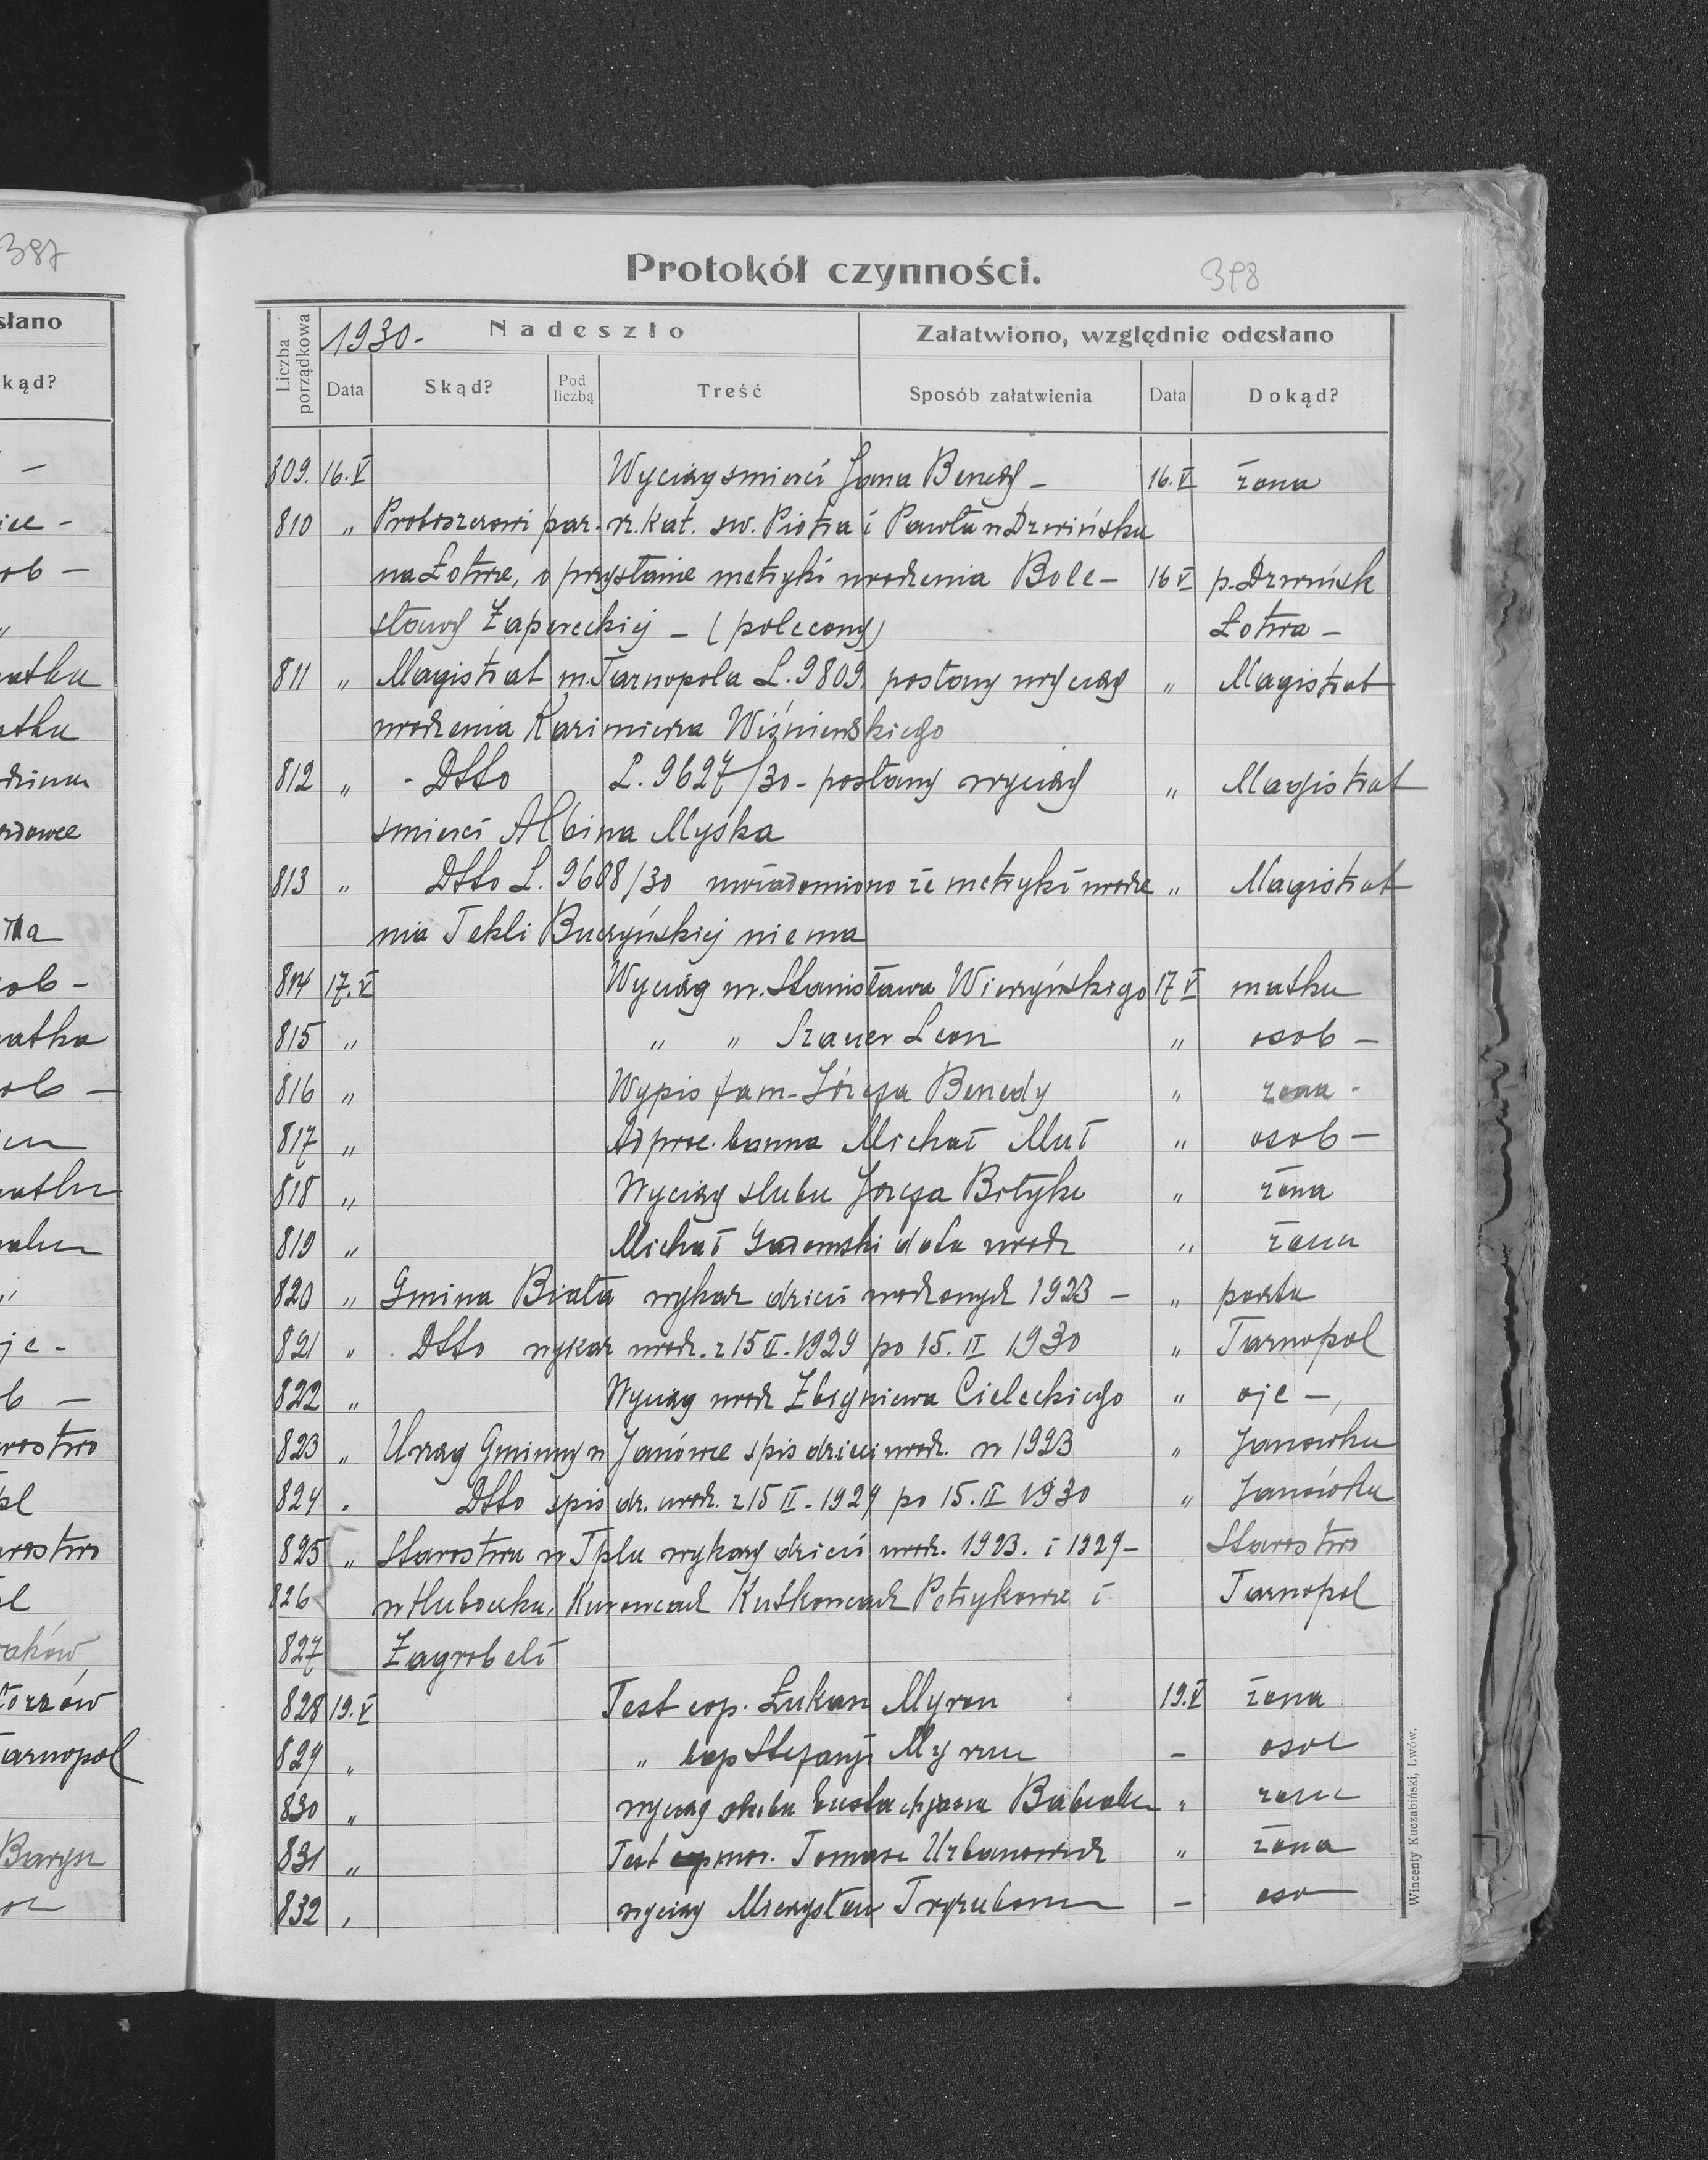 387
słano
kąd?
Protokół czynności.
398
Liczba porządkowa
1930.-
Nadeszło
Załatwiono, względnie odesłano
Data
Skąd?
Pod liczbą
Treść
Sposób załatwienia
Data
Dokąd?
809. 16.V Wyciąg smierci Jana Benedy - 16.V żona
810 „ Proboszczowi par. rz. kat. sw. Piotra i Pawła w Dzwińsku
na Łotwie, o przysłanie metryki urodzenia Bole- 16 V p. Dzwińsk
sławy Zapereckiej - (polecony) Łotwa -
811 „ Magistrat m. Tarnopola L. 9809 posłany wyciąg „ Magistrat
urodzenia Kazimierza Wiśniewskiego
812 „ - Dtto L. 9627/30 - posłany wyciąg „ Magistrat
smierci Albina Myśka
813 „ Dtto L. 9608/30 uwiadomiono że metryki urodze „ Magistrat
nia Tekli Buczyńskiej niema
814 17.V Wyciąg m. Stanisława Wierzyńskiego 17 V matka
815 „ „ „ Szauer Leon „ osob -
816 „ Wypis fam. Józefa Benedy „ zona -
817 „ Ad proc. banna Michał Muł „ osob -
818 „ Wyciąg slubu Józefa Bityke „ żona
819 „ Michał Gadomski data urodz „ żona
820 „ Gmina Biała wykaz dzieci urodzonych 1923 - „ poszta
821 „ Dtto wykaz urodz. z 15 II. 1929 po 15. II 1930 „ Tarnopol
822 „ Wyciąg urodz Zbigniewa Cieleckiego „ ojc -
823 „ Urząg Gminny w Janówce spis dzieci urodz. w 1923 „ Janowka
824 . Dtto spis dz. urodz. z 15 II. 1929 po 15. II 1930 „ Janówka
825 „ Starostwu w Tplu wykazy dzieci urodz. 1923. i 1929 - Starostwo
826 w Hłuboczku, Kurowcach Kutkowcach Petrykowie i Tarnopol
827 Zagrobeli
828 19.V Test cop. Łukasz Myron 19.V żona
829 „ „ bap Stefanji Myron - osob
830 „ wyciąg slubu Eustachjusza „ zona
831 „ Test mor. Tomasz Urbanowicz „ żona
832 „ wyciąg Mieczysław - oso
Wincenty Kuczabiński, Lwów.